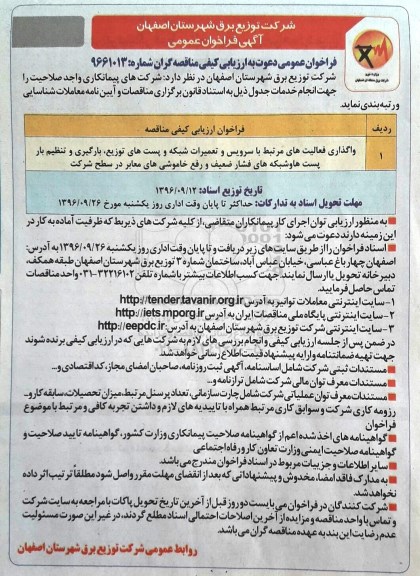 شرکت توزیع برق شهرستان اصفهان
آگهی فراخوان عمومی
فراخوان عمومی دعوت به ارزیابی کیفی مناقصه گران شماره: ۹۶۶۱۰۱۳
شرکت توزیع برق شهرستان اصفهان در نظر دارد: شرکت های پیمانکاری واجد صلاحیت را
جهت انجام خدمات جدول ذیل به استناد قانون برگزاری مناقصات و آیین نامه معاملات شناسایی
و رتبه بندی نماید.
ردیف فراخوان ارزیابی کیفی مناقصه
۱ واگذاری فعالیت های مرتبط با سرویس و تعمیرات شبکه و پست های توزیع، بارگیری و تنظیم بار
پست ها و شبکه های فشار ضعیف و رفع خاموشی های معابر در سطح شرکت
تاریخ توزیع اسناد: ۱۳۹۶/۰۹/۱۲
مهلت تحویل اسناد به تدارکات: حداکثر تا پایان وقت اداری روز یکشنبه مورخ ۱۳۹۶/۰۹/۲۶
به منظور ارزیابی توان اجرای کار پیمانکاران متقاضی، از کلیه شرکت های ذیربط که ظرفیت آماده به کار در
این زمینه دارند دعوت می شود:
اسناد فراخوان را از طریق سایت های زیر دریافت و تا پایان وقت اداری روز یکشنبه ۱۳۹۶/۰۹/۲۶ به آدرس:
اصفهان چهار باغ عباسی، خیابان عباس آباد، ساختمان شماره ۳ توزیع برق شهرستان اصفهان طبقه همکف،
دبیرخانه تحویل یا ارسال نمایند؛ جهت کسب اطلاعات بیشتر با شماره تلفن ۳۲۲۱۶۱۰۲-۰۳۱ واحد مناقصات
تماس حاصل فرمایید.
۱- سایت اینترنتی معاملات توانیر به آدرس http://tender.tavanir.org.ir
۲- سایت اینترنتی پایگاه ملی مناقصات ایران به آدرس http://iets.mporg.ir
۳- سایت اینترنتی شرکت توزیع برق شهرستان اصفهان به آدرس: http://eepdc.ir
در ضمن پس از جلسه ارزیابی کیفی و انجام بررسی های لازم به شرکت هایی که در ارزیابی کیفی برنده شوند
جهت تهیه ضمانتنامه و ارایه پیشنهاد قیمت اطلاع رسانی خواهد شد.
مستندات ثبتی شرکت شامل اساسنامه، آگهی ثبت روزنامه، صاحبان امضای مجاز، کد اقتصادی و...
مستندات معرف توان مالی شرکت شامل ترازنامه و...
مستندات معرف توان عملیاتی شرکت شامل چارت سازمانی، تعداد پرسنل مرتبط، میزان تحصیلات، سابقه کار و...
رزومه کاری شرکت و سوابق کاری مرتبط همراه با تاییدیه های لازم و داشتن تجربه کافی و مرتبط با موضوع
فراخوان
گواهینامه های اخذ شده اعم از گواهینامه صلاحیت پیمانکاری وزارت کشور، گواهینامه تایید صلاحیت و
گواهینامه صلاحیت ایمنی وزارت تعاون کار و رفاه اجتماعی
سایر اطلاعات و جزییات مربوط در اسناد فراخوان مندرج می باشد.
به مدارک فاقد امضا، مخدوش و پیشنهاداتی که بعد از انقضای مهلت مقرر واصل شود مطلقاً ترتیب اثر داده
نخواهد شد.
شرکت کنندگان در فراخوان می بایست دو روز قبل از آخرین تاریخ تحویل پاکات با مراجعه به سایت شرکت
و تماس با واحد مناقصه و مزایده از آخرین اصلاحات احتمالی اسناد مطلع گردند، در غیر این صورت مسئولیت
عدم رضایت این بند به عهده مناقصه گران می باشد.
روابط عمومی شرکت توزیع برق شهرستان اصفهان